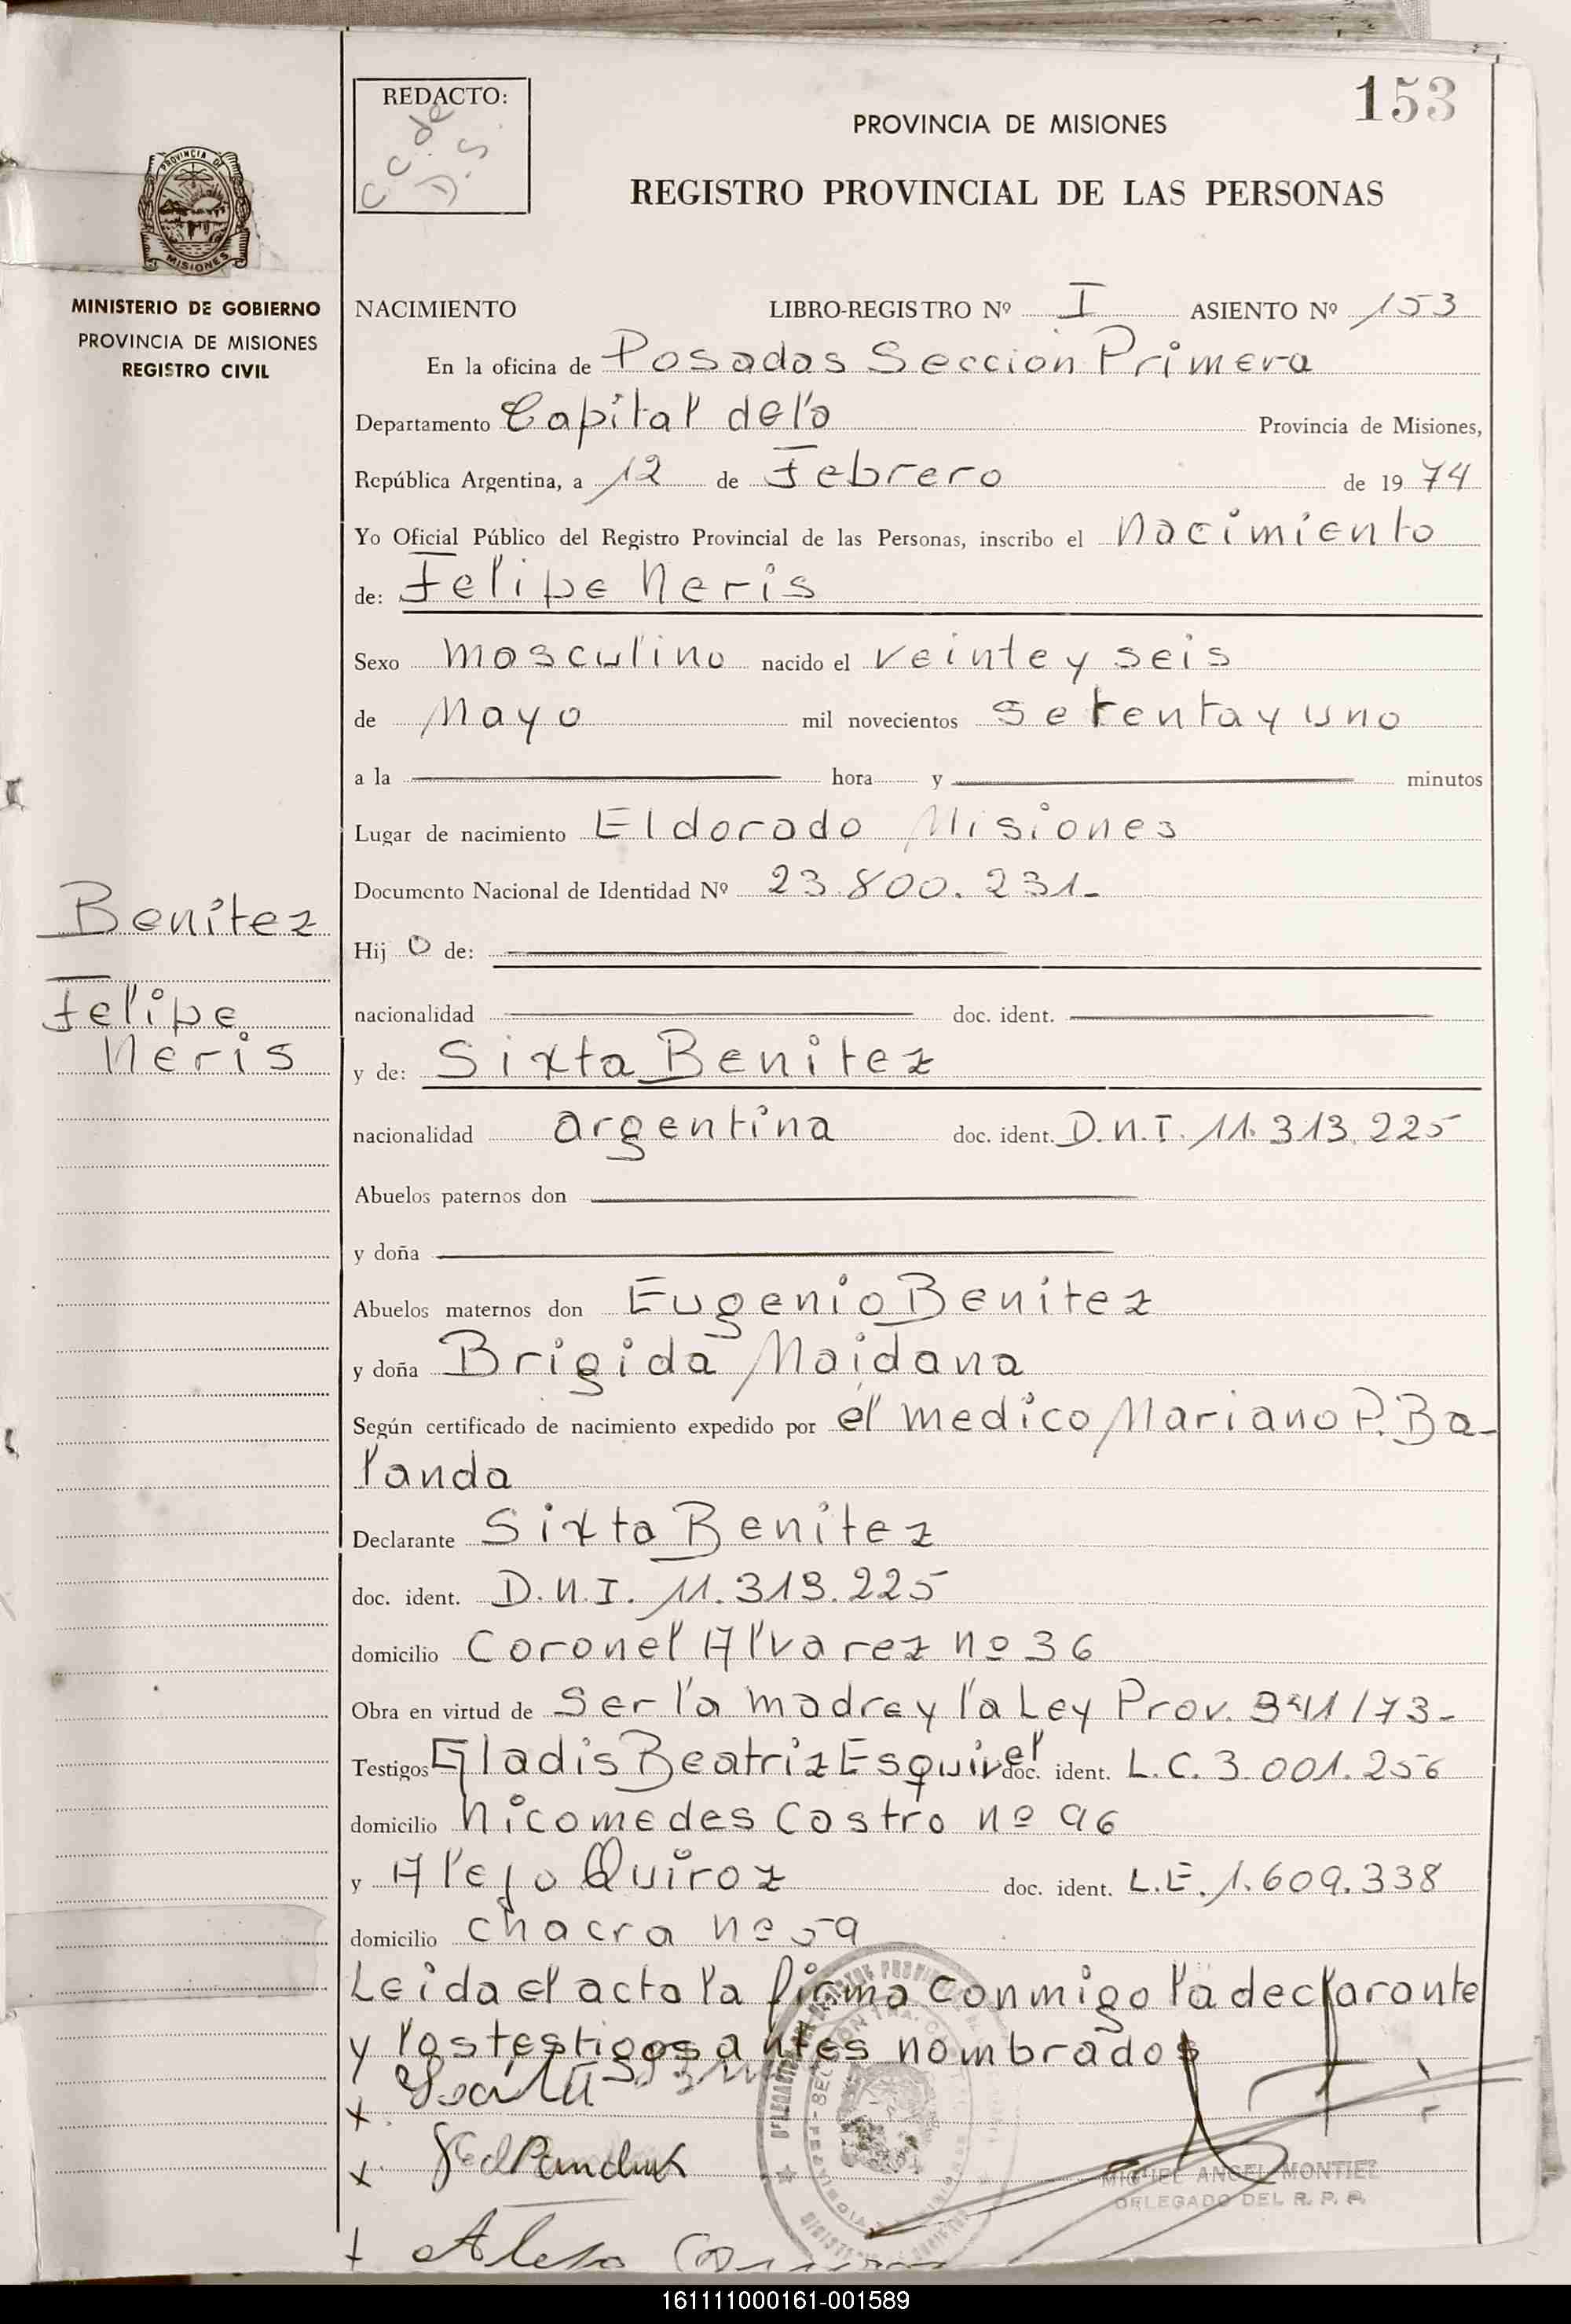 153
REDACTO:
C.C. de
D.S.
PROVINCIA DE MISIONES
REGISTRO PROVINCIAL DE LAS PERSONAS
PROVINCIA DE
MISIONES
MINISTERIO DE GOBIERNO
PROVINCIA DE MISIONES
REGISTRO CIVIL
NACIMIENTO LIBRO-REGISTRO Nº I ASIENTO Nº 153
En la oficina de Posadas Seccion Primera
Departamento Capital de la Provincia de Misiones,
República Argentina, a 12 de Febrero de 1974
Yo Oficial Público del Registro Provincial de las Personas, inscribo el nacimiento
de: Felipe Neris
Sexo masculino nacido el veinte y seis
de Mayo mil novecientos setenta y uno
a la hora y minutos
Lugar de nacimiento Eldorado Misiones
Documento Nacional de Identidad Nº 23.800.231-
Benitez
Felipe
Neris
Hij o de:
nacionalidad doc. ident.
y de: Sixta Benitez
nacionalidad argentina doc. ident. D.N.I. 11.313.225
Abuelos paternos don
y doña
Abuelos maternos don Eugenio Benitez
y doña Brigida Maidana
Según certificado de nacimiento expedido por el medico Mariano P. Ba-
landa
Declarante Sixta Benitez
doc. ident. D.N.I. 11.313.225
domicilio Coronel Alvarez nº 36
Obra en virtud de ser la madre y la Ley Prov. 341/73-
Testigos Gladis Beatriz Esquivel doc. ident. L.C. 3.001.256
domicilio Nicomedes Castro nº 96
y Alejo Quiroz doc. ident. L.E. 1.609.338
domicilio chacra nº 59
Leida el acta la firma conmigo la declarante
y los testigos antes nombrados
x
x
MIGUEL ANGEL MONTIEL
DELEGADO DEL R. P. P.
161111000161-001589